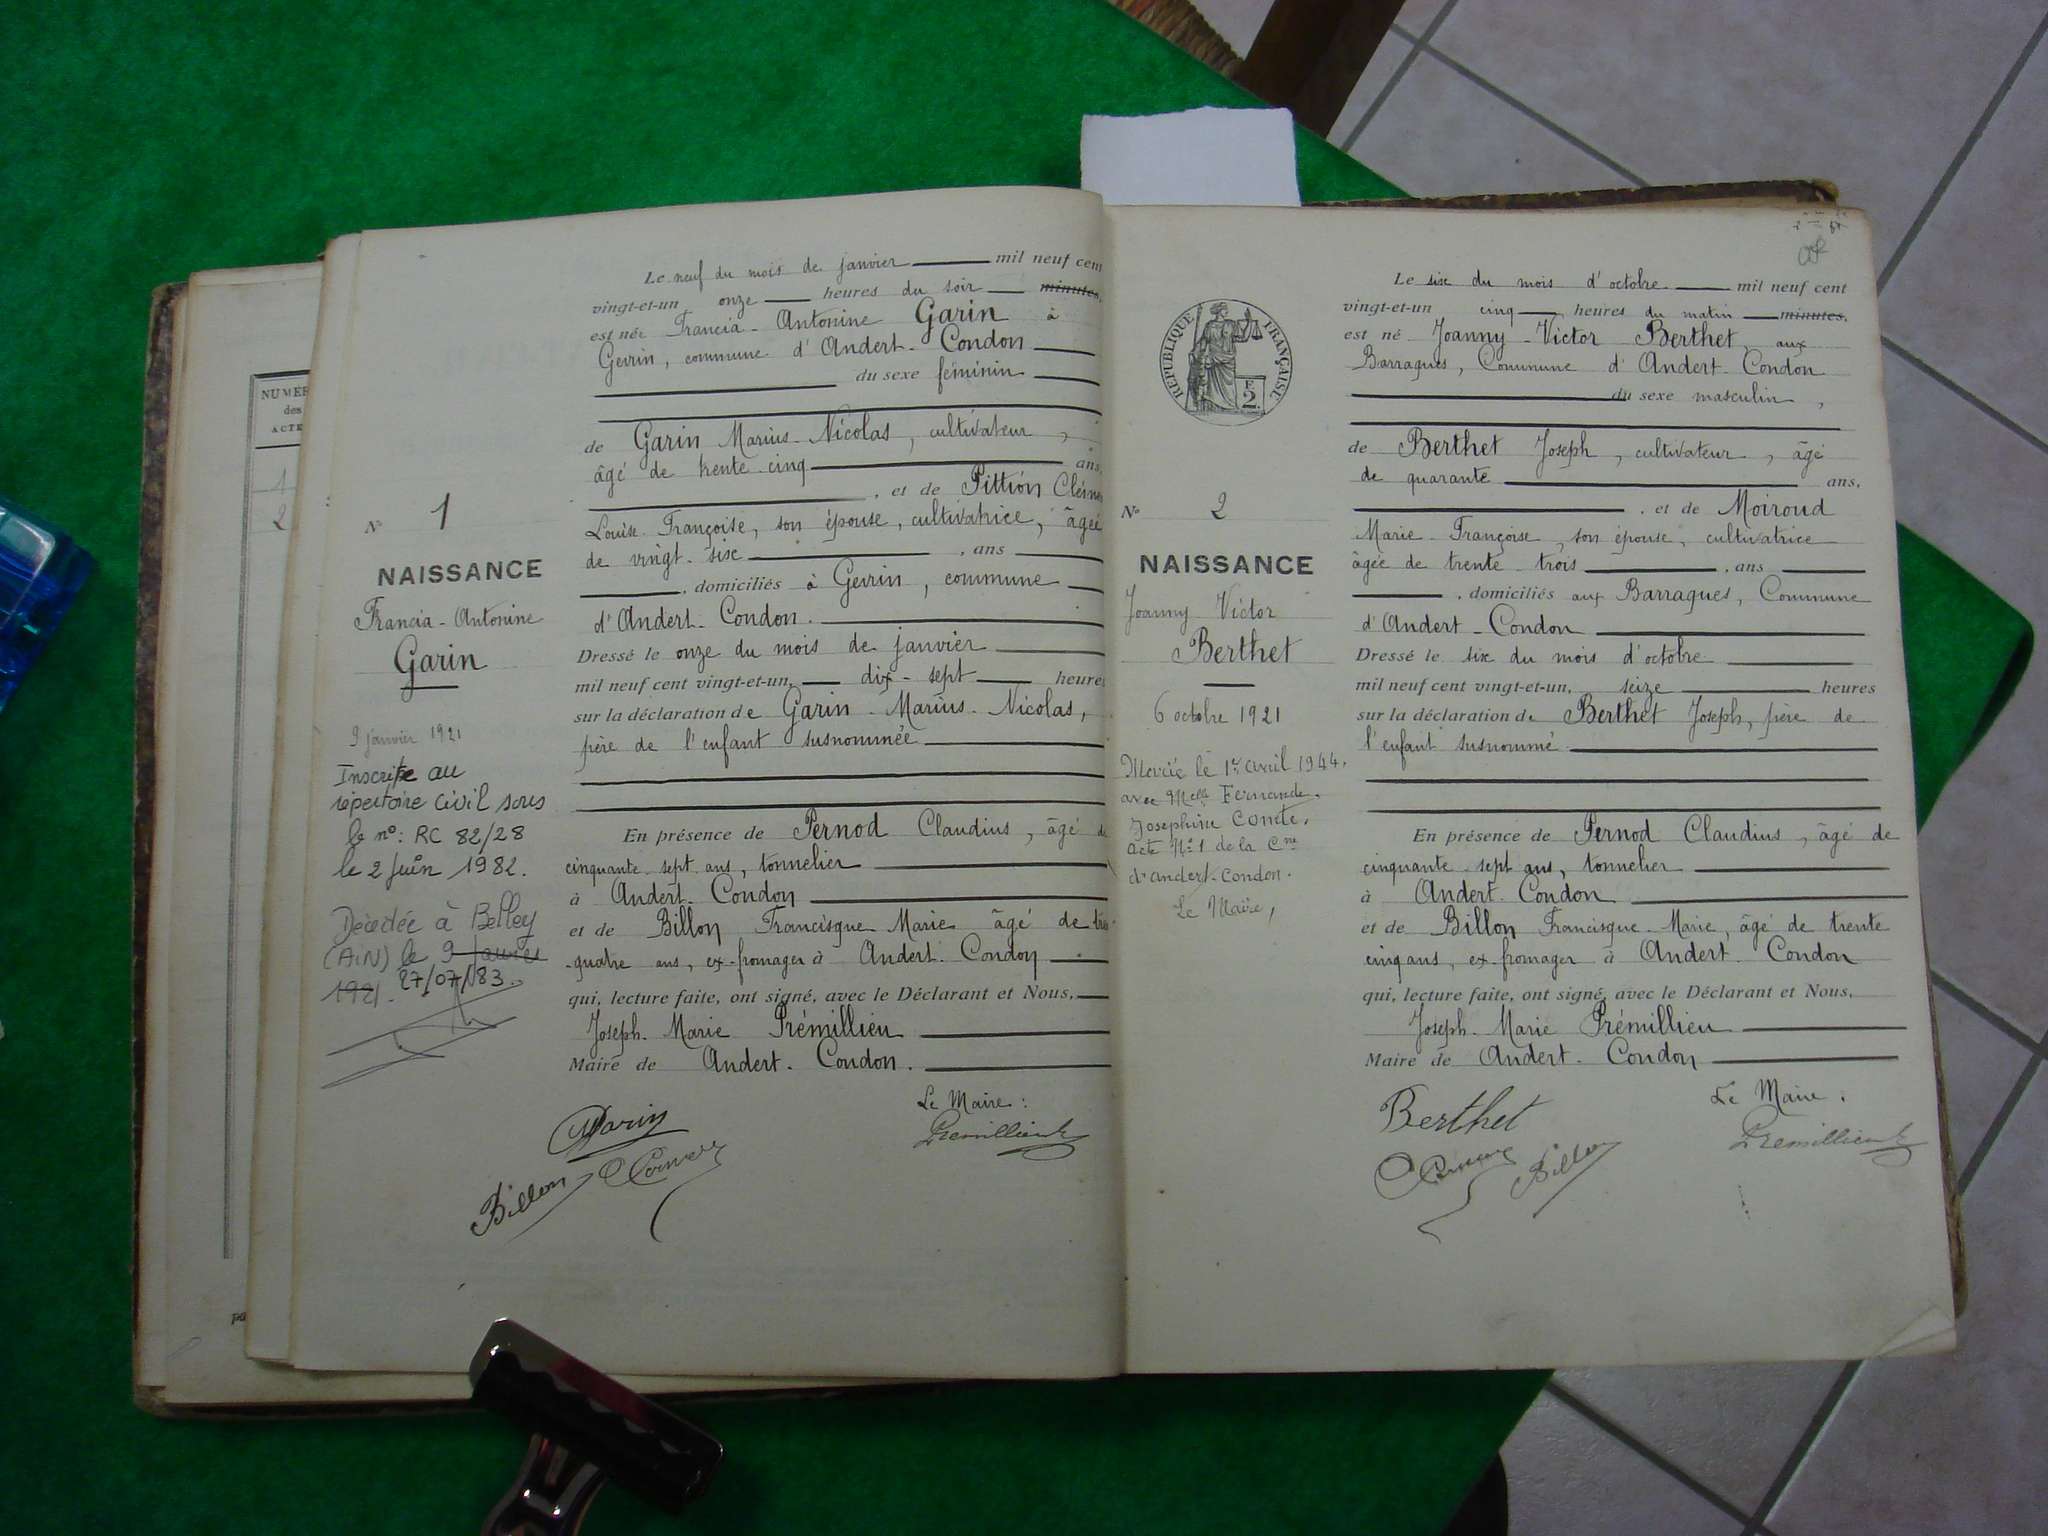 NUMÉR
des
ACTE
1
2
N° 1
NAISSANCE
Francia-Antonine
Garin
9 janvier 1921
Inscrite au
répertoire civil sous
le n°: RC 82/28
le 2 juin 1982.
Décédée à Belley
(AIN) le 9 janvier
1921. 27/07/83.
Le neuf du mois de janvier mil neuf cent
vingt-et-un onze heures du soir minutes,
est née Francia-Antonine Garin à
Gevrin, commune d'Andert-Condon
du sexe féminin
de Garin Marius-Nicolas, cultivateur,
âgé de trente-cinq ans,
, et de Pittion
Louise-Françoise, son épouse, cultivatrice, âgée
de vingt-six , ans
, domiciliés à Gevrin, commune
d'Andert-Condon.
Dressé le onze du mois de janvier
mil neuf cent vingt-et-un, dix-sept heures
sur la déclaration de Garin-Marius-Nicolas,
père de l'enfant susnommée
En présence de Pernod Claudius, âgé de
cinquante-sept ans, tonnelier
à Andert-Condon
et de Billon Francisque Marie âgé de
quatre ans, ex-fromager à Andert-Condon
qui, lecture faite, ont signé, avec le Déclarant et Nous,
Joseph-Marie Prémillieu
Maire de Andert-Condon.
Le Maire:
Garin
Prémillieu
Billon
N° 2
NAISSANCE
Joanny Victor
Berthet
6 octobre 1921
Marié le 1er avril 1944.
avec Melle Fernande.
Josephine Comte.
acte N°1 de la Cne
d'andert-Condon.
Le Maire,
RÉPUBLIQUE FRANÇAISE
F.
2
Le six du mois d'octobre mil neuf cent
vingt-et-un cinq heures du matin minutes,
est né Joanny-Victor Berthet aux
Barraques, Commune d'Andert-Condon
du sexe masculin,
de Berthet Joseph, cultivateur, âgé
de quarante ans,
, et de Moiroud
Marie-Françoise, son épouse, cultivatrice
âgée de trente-trois , ans
, domiciliés aux Barraques, Commune
d'Andert-Condon
Dressé le six du mois d'octobre
mil neuf cent vingt-et-un, seize heures
sur la déclaration de Berthet Joseph, père de
l'enfant susnommé
En présence de Pernod Claudius, âgé de
cinquante-sept ans, tonnelier
à Andert-Condon
et de Billon Francisque-Marie, âgé de trente
cinq ans, ex-fromager à Andert-Condon
qui, lecture faite, ont signé, avec le Déclarant et Nous,
Joseph-Marie Prémillieu
Maire de Andert-Condon
Berthet
Le Maire.
Prémillieu
Billon